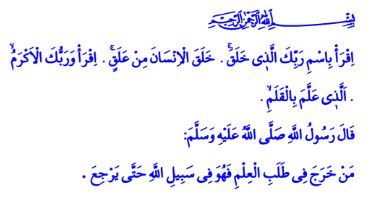 بِسْمِ اللّٰهِ الرَّحْمٰنِ الرَّحِيمِ
اِقْرَأْ بِاسْمِ رَبِّكَ الَّذٖى خَلَقَۚ . خَلَقَ الْاِنْسَانَ مِنْ عَلَقٍۚ . اِقْرَأْ وَرَبُّكَ الْاَكْرَمُۙ
. اَلَّذٖى عَلَّمَ بِالْقَلَمِۙ .
قَالَ رَسُولُ اللَّهِ صَلَّى اللَّهُ عَلَيْهِ وَسَلَّمَ:
مَنْ خَرَجَ فِى طَلَبِ الْعِلْمِ فَهُوَ فِى سَبِيلِ اللَّهِ حَتَّى يَرْجِعَ .